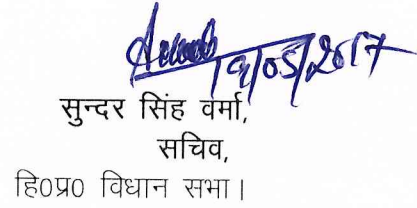 19/05/2017
सुन्दर सिंह वर्मा,
सचिव,
हि0प्र0 विधान सभा।